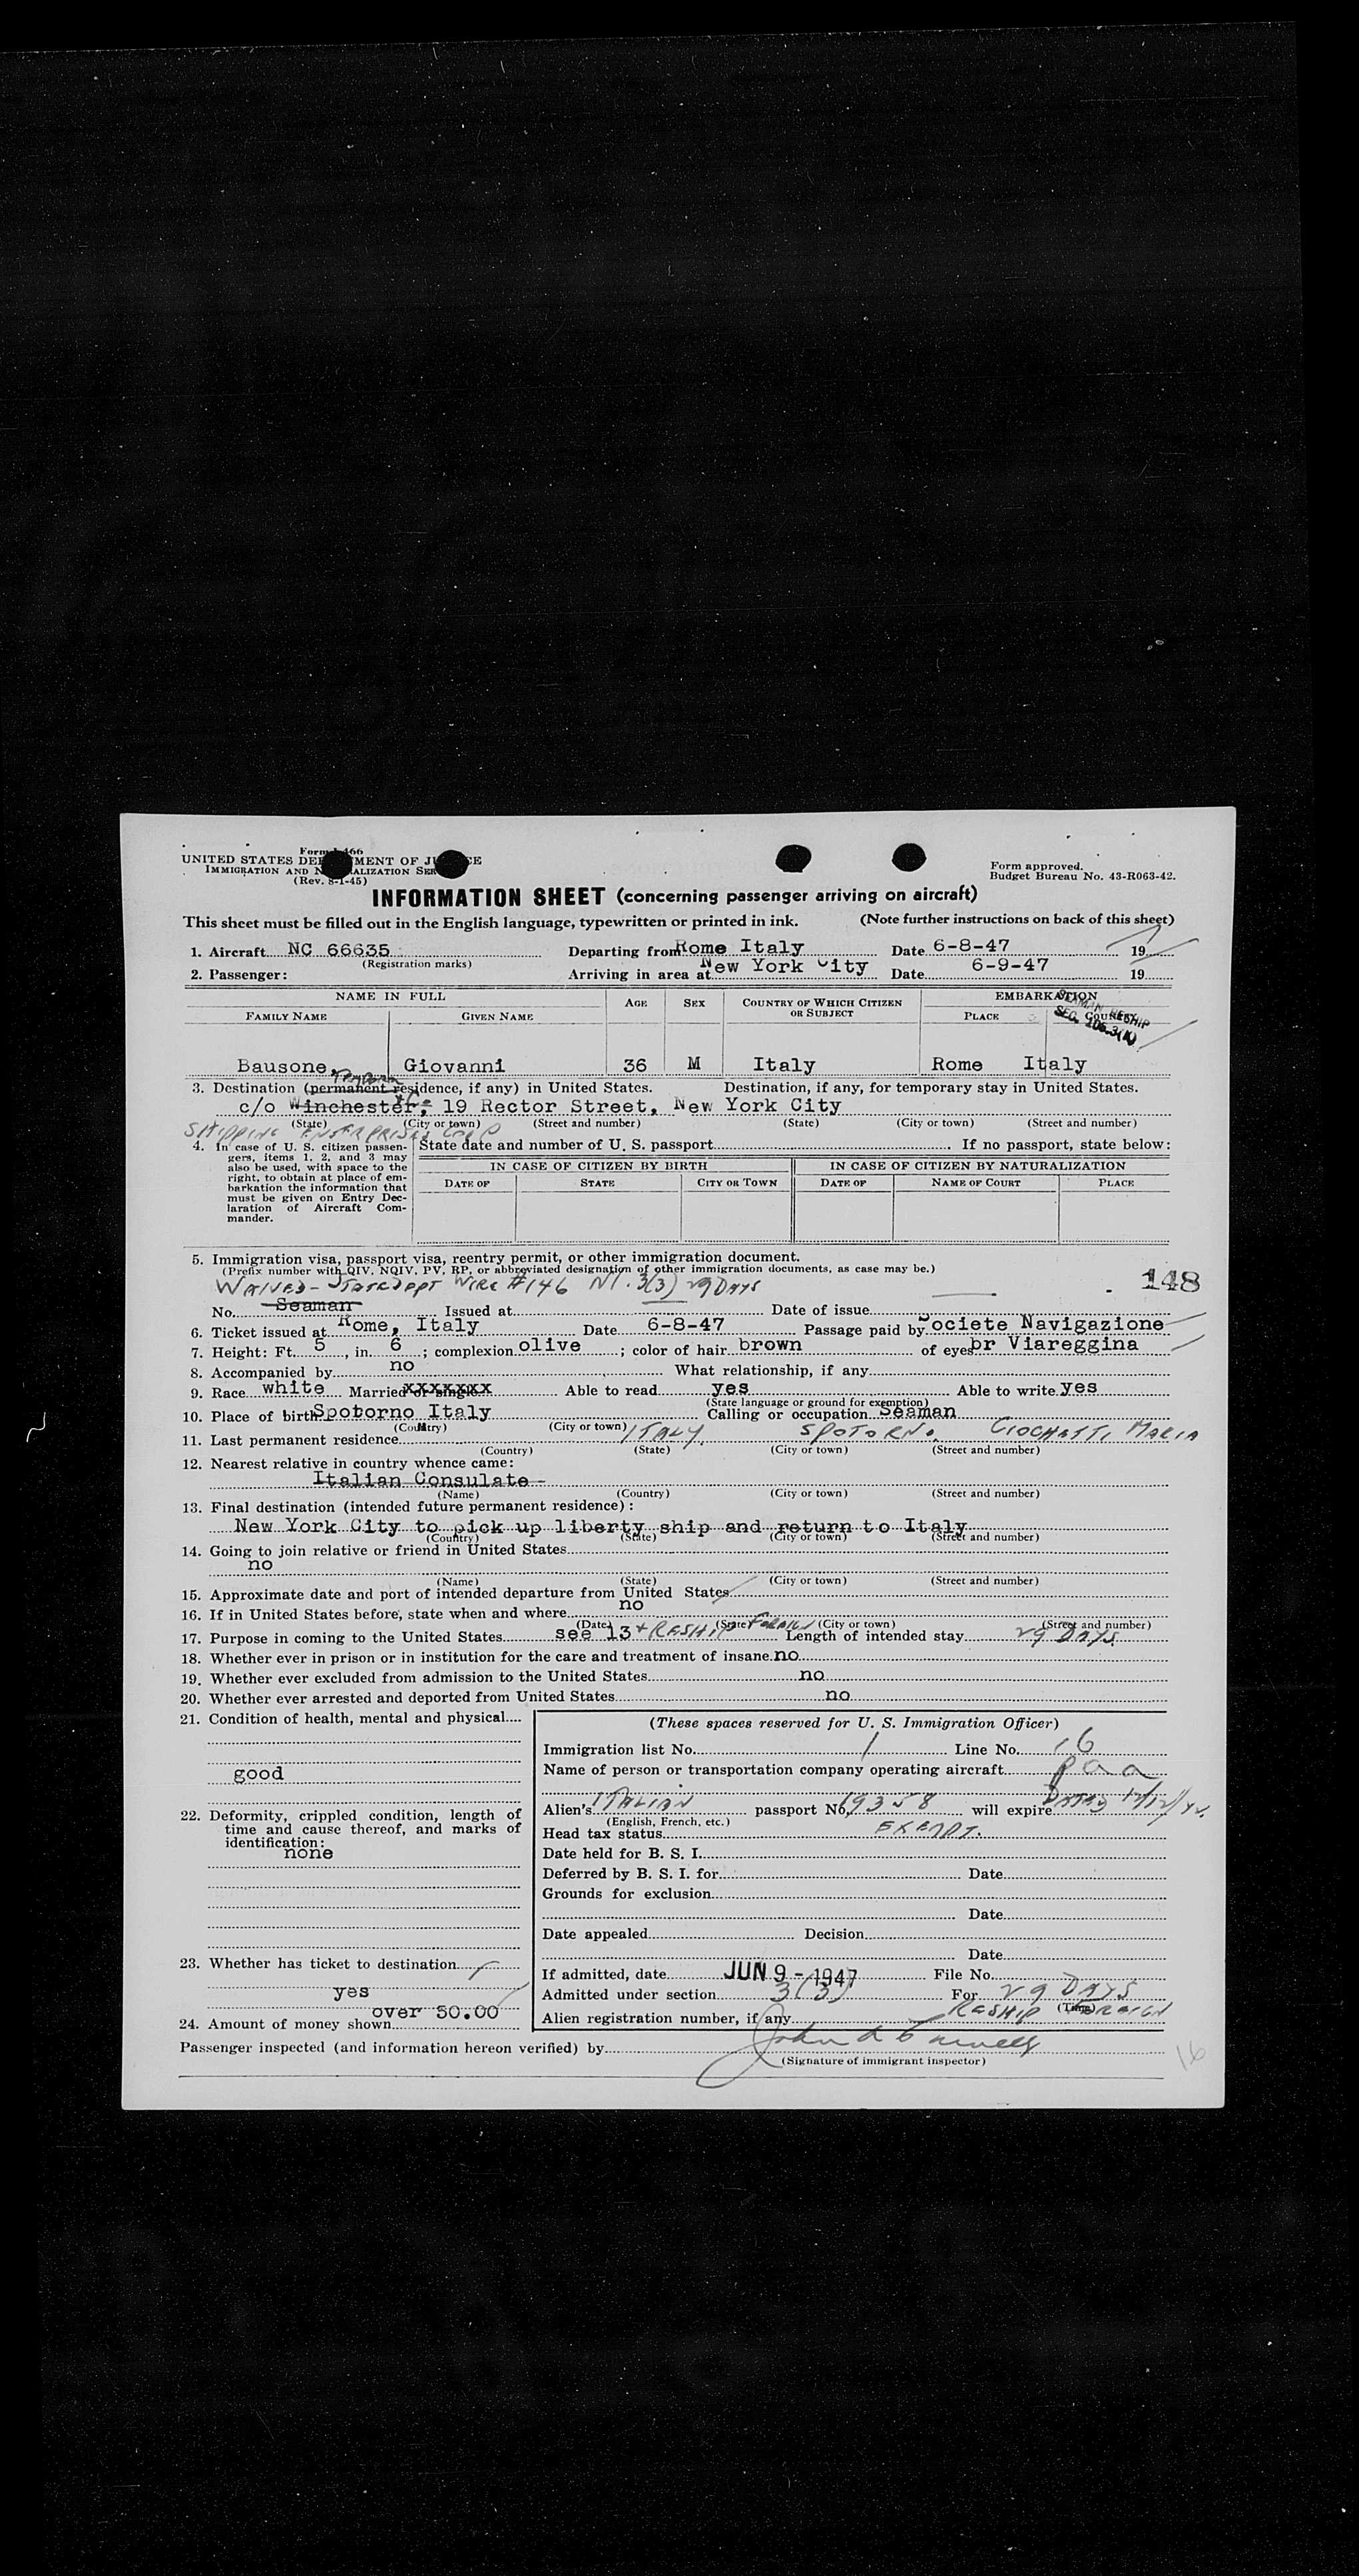 Form I-466
UNITED STATES DEPARTMENT OF JUSTICE
IMMIGRATION AND NATURALIZATION SERVICE
(Rev. 8-1-45)
Form approved.
Budget Bureau No. 43-R063-42.
INFORMATION SHEET (concerning passenger arriving on aircraft)
This sheet must be filled out in the English language, typewritten or printed in ink. (Note further instructions on back of this sheet)
1. Aircraft NC 66635 Departing from Rome Italy Date 6-8-47 19
(Registration marks)
2. Passenger: Arriving in area at New York City Date 6-9-47 19
NAME IN FULL AGE SEX COUNTRY OF WHICH CITIZEN OR SUBJECT EMBARKATION
FAMILY NAME GIVEN NAME PLACE COUNTRY
SEAMAN RESHIP
SEC. 106.3(K)
Bausone, Giovanni 36 M Italy Rome Italy
3. Destination (permanent residence, if any) in United States. Destination, if any, for temporary stay in United States.
c/o Winchester, + Co 19 Rector Street, New York City
(State) (City or town) (Street and number) (State) (City or town) (Street and number)
SHIPPING ENTERPRISES CORP
4. In case of U. S. citizen passengers, items 1, 2, and 3 may also be used, with space to the right, to obtain at place of embarkation the information that must be given on Entry Declaration of Aircraft Commander.
State date and number of U. S. passport If no passport, state below:
IN CASE OF CITIZEN BY BIRTH IN CASE OF CITIZEN BY NATURALIZATION
DATE OF STATE CITY OR TOWN DATE OF NAME OF COURT PLACE
5. Immigration visa, passport visa, reentry permit, or other immigration document.
(Prefix number with QIV, NQIV, PV, RP, or abbreviated designation of other immigration documents, as case may be.)
WAIVED - STATE DEPT WIRE #146 NI. 3(3) 29 DAYS 148
No. Seaman Issued at Date of issue
6. Ticket issued at Rome, Italy Date 6-8-47 Passage paid by Societe Navigazione
7. Height: Ft. 5, in. 6; complexion olive; color of hair brown of eyes br Viareggina
8. Accompanied by no What relationship, if any
9. Race white Married or single xxxxxxx Able to read yes Able to write yes
(State language or ground for exemption)
10. Place of birth Spotorno Italy Calling or occupation Seaman
(Country) (City or town)
11. Last permanent residence ITALY. SPOTORNO CIOCHETTI MARIA
(Country) (State) (City or town) (Street and number)
12. Nearest relative in country whence came:
Italian Consulate
(Name) (Country) (City or town) (Street and number)
13. Final destination (intended future permanent residence):
New York City to pick up liberty ship and return to Italy
(Country) (State) (City or town) (Street and number)
14. Going to join relative or friend in United States
no
(Name) (State) (City or town) (Street and number)
15. Approximate date and port of intended departure from United States
16. If in United States before, state when and where no
(Date) (State) (City or town) (Street and number)
17. Purpose in coming to the United States see 13 + RESHIP FOREIGN Length of intended stay 29 DAYS
18. Whether ever in prison or in institution for the care and treatment of insane no
19. Whether ever excluded from admission to the United States no
20. Whether ever arrested and deported from United States no
21. Condition of health, mental and physical
good
22. Deformity, crippled condition, length of time and cause thereof, and marks of identification:
none
23. Whether has ticket to destination
yes
over 50.00
24. Amount of money shown
(These spaces reserved for U. S. Immigration Officer)
Immigration list No. 1 Line No. 16
Name of person or transportation company operating aircraft paa
Alien's ITALIAN passport No. 19358 will expire
(English, French, etc.)
Head tax status EXEMPT.
Date held for B. S. I.
Deferred by B. S. I. for Date
Grounds for exclusion
Date
Date appealed Decision
Date
If admitted, date JUN 9 - 1947 File No.
Admitted under section 3(3) For 29 DAYS
(Time)
RESHIP FOREIGN
Alien registration number, if any
Passenger inspected (and information hereon verified) by
(Signature of immigrant inspector)
16